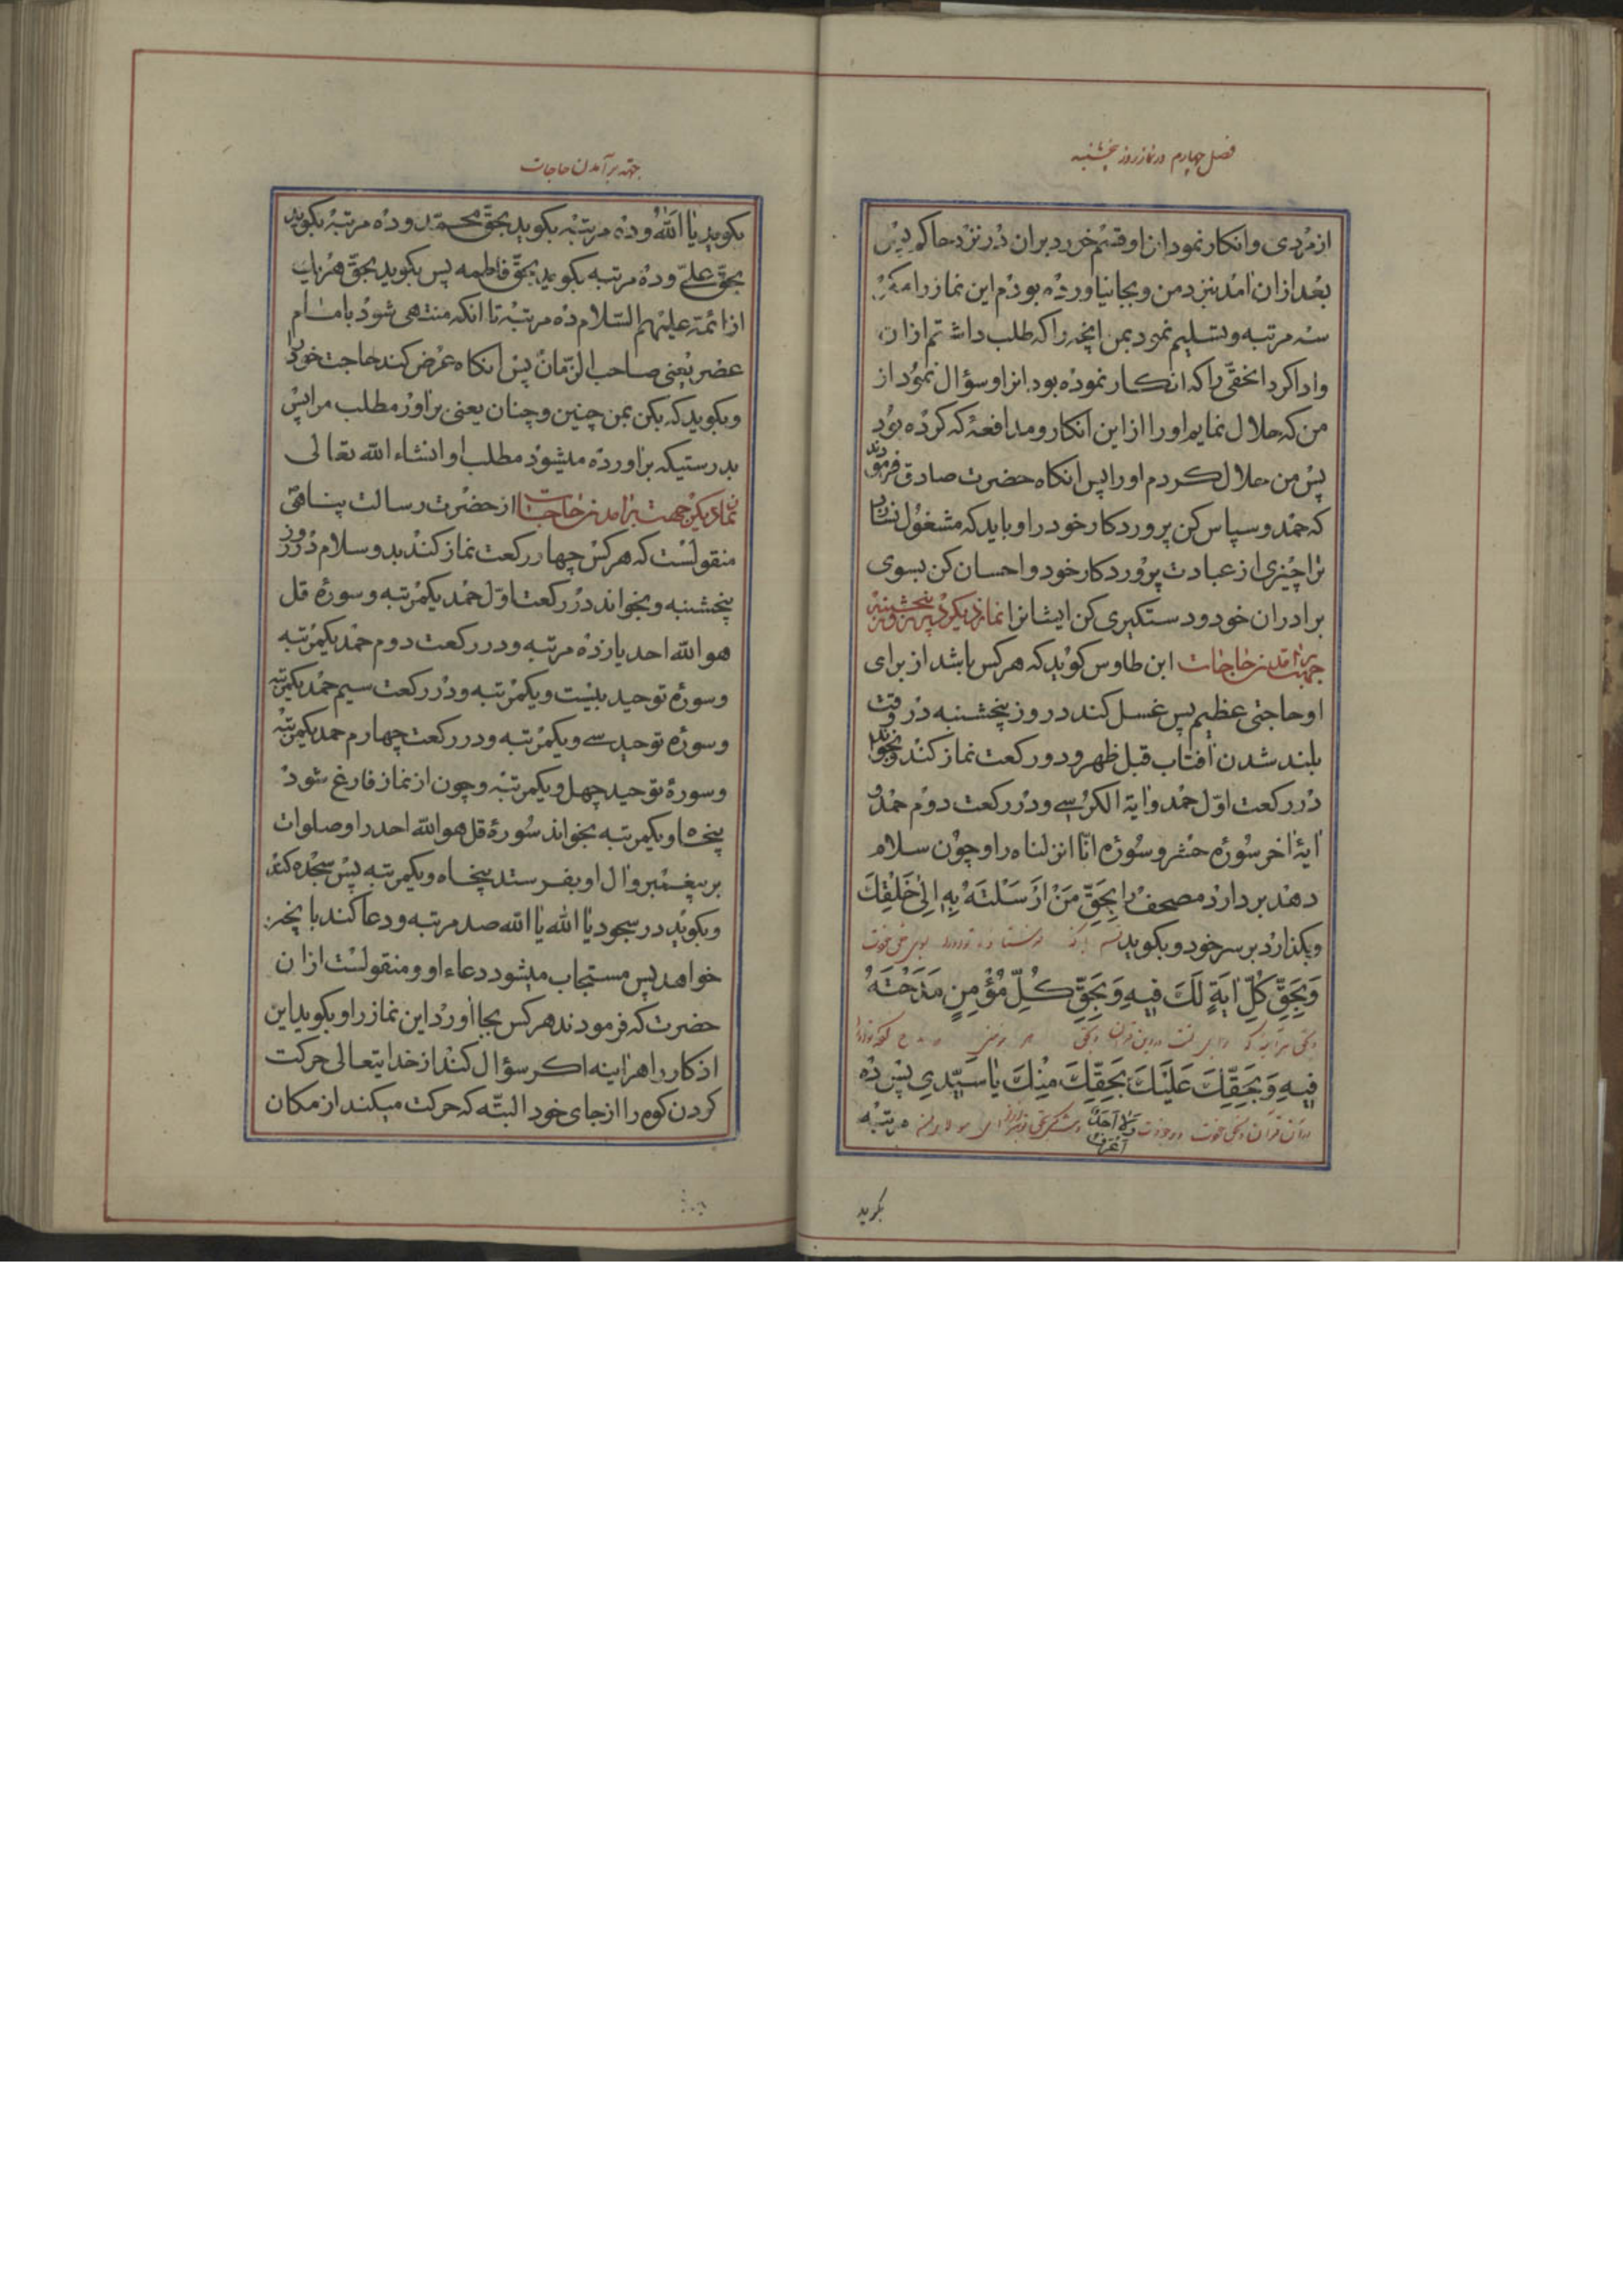 فصل چهارم در نماز روز پنجشنبه
از مردی و انکار نمود از او و قسم خورد بران در نزد حاکم پس
بعد از ان امد بنزد من و بجا نیاورده بودم این نماز را مگر
سه مرتبه و تسلیم نمود بمن انچه را که طلب داشتم از ان
و ادا کرد انحقی را که انکار نموده بود از او و سؤال نمود از
من که حلال نمایم او را از این انکار و مدافعهٔ که کرده بود
پس من حلال کردم او را پس انکاه حضرت صادق فرمودند
که حمد و سپاس کن پروردکار خود را و باید که مشغول نسازد
ترا چیزی از عبادت پروردکار خود و احسان کن بسوی
برادران خود و دستکیری کن ایشانرا نماز دیکر در پنجشنبه
جهت برامدن حاجات ابن طاوس کوید که هر کس باشد از برای
او حاجتی عظیم پس غسل کند در روز پنجشنبه در وقت
بلند شدن افتاب قبل ظهر و دو رکعت نماز کند و بخواند
در رکعت اوّل حمد و ایة الکرسی و در رکعت دوم حمد و
ایهٔ اخر سورهٔ حشر و سورهٔ انّا انزلناه را و چون سلام
دهد بردارد مصحف را بِحَقِّ مَنْ اَرْسَلْتَهُ بِهِ اِلیٰ خَلْقِكَ
و بکذارد بر سر خود و بکوید
وَبِحَقِّ كُلِّ ایَةٍ لَكَ فیهِ وَبِحَقِّ كُلِّ مُؤْمِنٍ مَدَحْتَهُ
فیهِ وَبِحَقِّكَ عَلَیْكَ بِحَقِّكَ مِنْكَ یا سَیِّدی پس ده
وَلا اَحَدَ اَعْرَفُ
مرتبه
بکوید
جهة برآمدن حاجات
بکوید یا اَللّهُ و ده مرتبه بکوید بحقّ محمّد و ده مرتبه بکوید
بحقّ علیّ و ده مرتبه بکوید بحقّ فاطمه پس بکوید بحقّ هر یك
از ائمّه علیهم السّلام ده مرتبه تا انکه منتهی شود بامام
عصر یعنی صاحب الزّمان پس انکاه عرض کند حاجت خود را
و بکوید که بکن بمن چنین و چنان یعنی براور مطلب مرا پس
بدرستیکه براورده میشود مطلب او انشاء الله تعالی
نماز دیکر جهت برامدن حاجات از حضرت رسالت پناهی
منقولست که هر کس چهار رکعت نماز کند بدو سلام در روز
پنجشنبه و بخواند در رکعت اوّل حمد یکمرتبه و سورهٔ قل
هو الله احد یازده مرتبه و در رکعت دوم حمد یکمرتبه
و سورهٔ توحید بیست و یکمرتبه و در رکعت سیم حمد یکمرتبه
و سورهٔ توحید سی و یکمرتبه و در رکعت چهارم حمد یکمرتبه
و سورهٔ توحید چهل و یکمرتبه و چون از نماز فارغ شود
پنجاه و یکمرتبه بخواند سورهٔ قل هو الله احد را و صلوات
بر پیغمبر و ال او بفرستد پنجاه و یکمرتبه پس سجده کند
و بکوید در سجود یا الله یا الله صد مرتبه و دعا کند بانچه
خواهد پس مستجاب میشود دعاء او و منقولست از ان
حضرت که فرمودند هر کس بجا اورد این نماز را و بکوید این
اذکار را هراینه اکر سؤال کند از خدایتعالی حرکت
کردن کوه را از جای خود البتّه که حرکت میکند از مکان